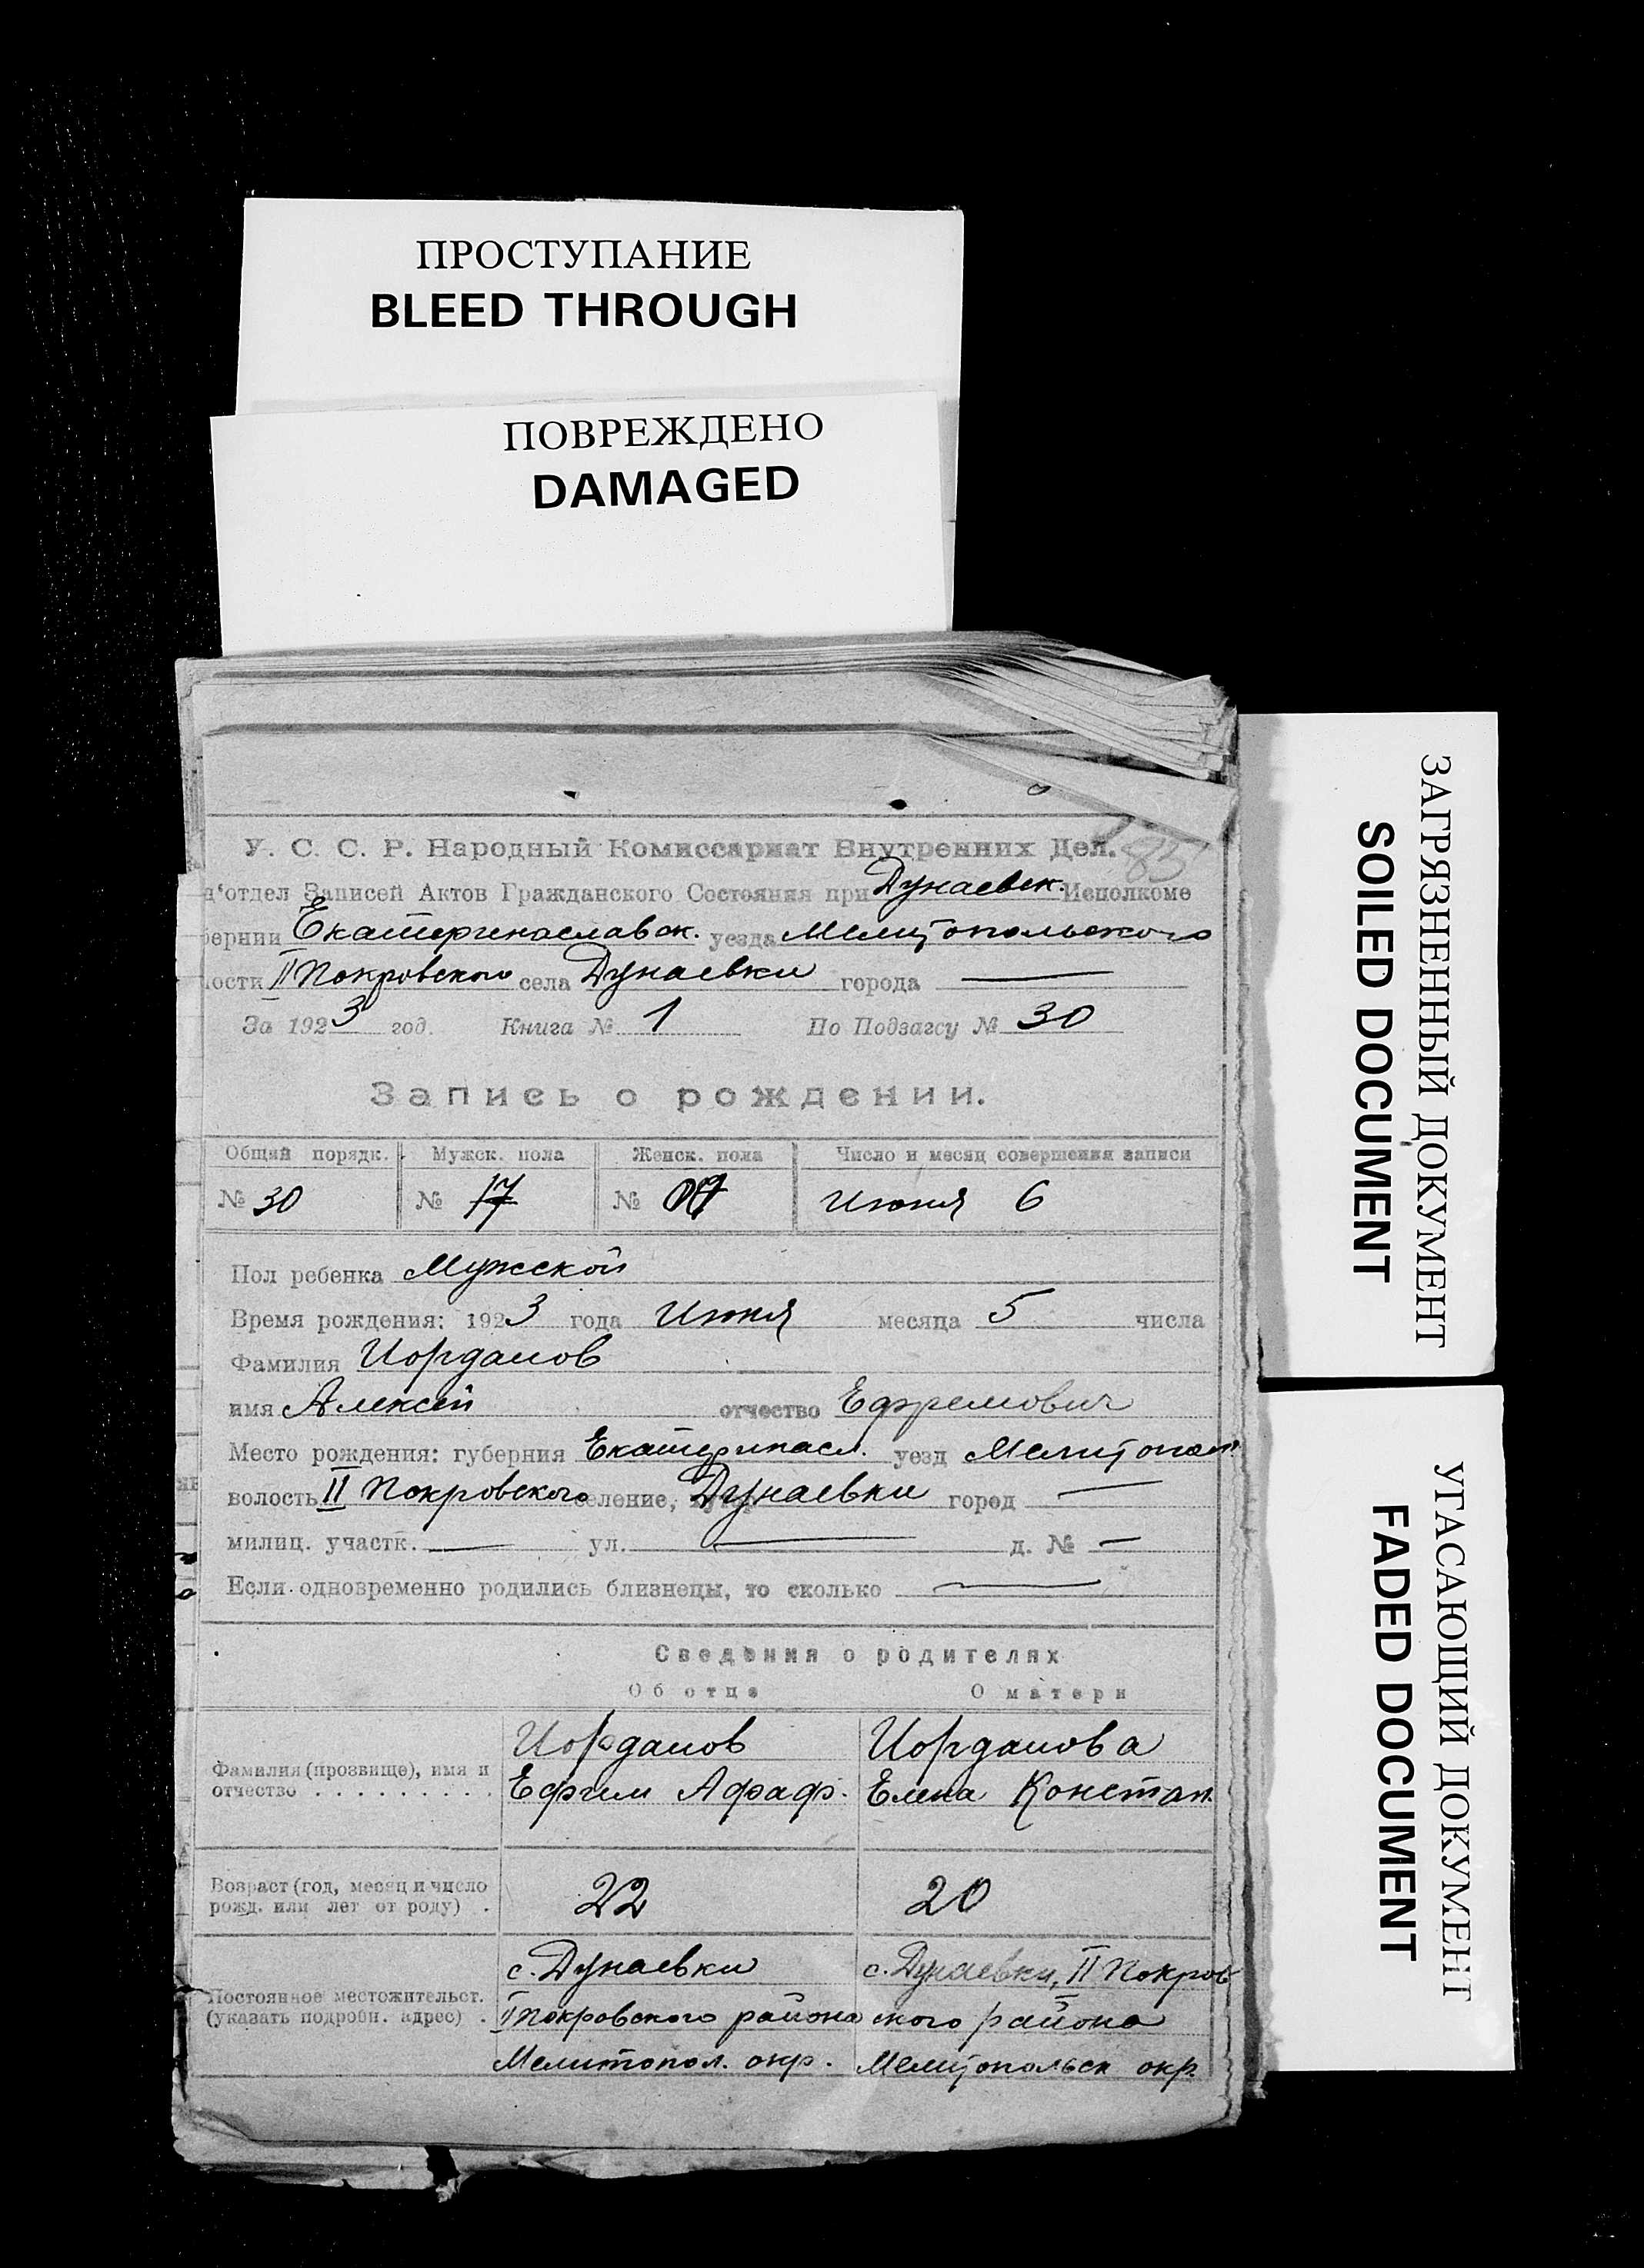 ПРОСТУПАНИЕ
BLEED THROUGH
ПОВРЕЖДЕНО
DAMAGED
85
У. С. С. Р. Народный Комиссариат Внутренних Дел.
д'отдел Записей Актов Гражданского Состояния при Дунаевск. Исполкоме
бернии Екатеринославск. уезда Мелитопольского
лости II Покровского села Дунаевки города —
За 1923 год. Книга № 1 По Подзагсу № 30
Запись о рождении.
Общий порядк. Мужск. пола Женск. пола Число и месяц совершения записи
№ 30 № 17 № Июня 6
Пол ребенка Мужской
Время рождения: 1923 года Июня месяца 5 числа
Фамилия Иорданов
имя Алексей отчество Ефремович
Место рождения: губерния Екатеринасл. уезд Мелитопол.
волость II Покровского селение, Дунаевки город —
милиц. участк. — ул. — д. № —
Если одновременно родились близнецы, то сколько —
Сведения о родителях
Об отце О матери
Фамилия (прозвище), имя и отчество . . . . . . . . . .
Иорданов
Ефрем Афраф.
Иорданова
Елена Констан.
Возраст (год, месяц и число рожд. или лет от роду) .
22
20
Постоянное местожительст. (указать подробн. адрес) .
с. Дунаевки
II Покровского района
Мелитопол. окр.
с. Дунаевки, II Покров
ского района
Мелитопольск окр.
ЗАГРЯЗНЕННЫЙ ДОКУМЕНТ
SOILED DOCUMENT
УГАСАЮЩИЙ ДОКУМЕНТ
FADED DOCUMENT